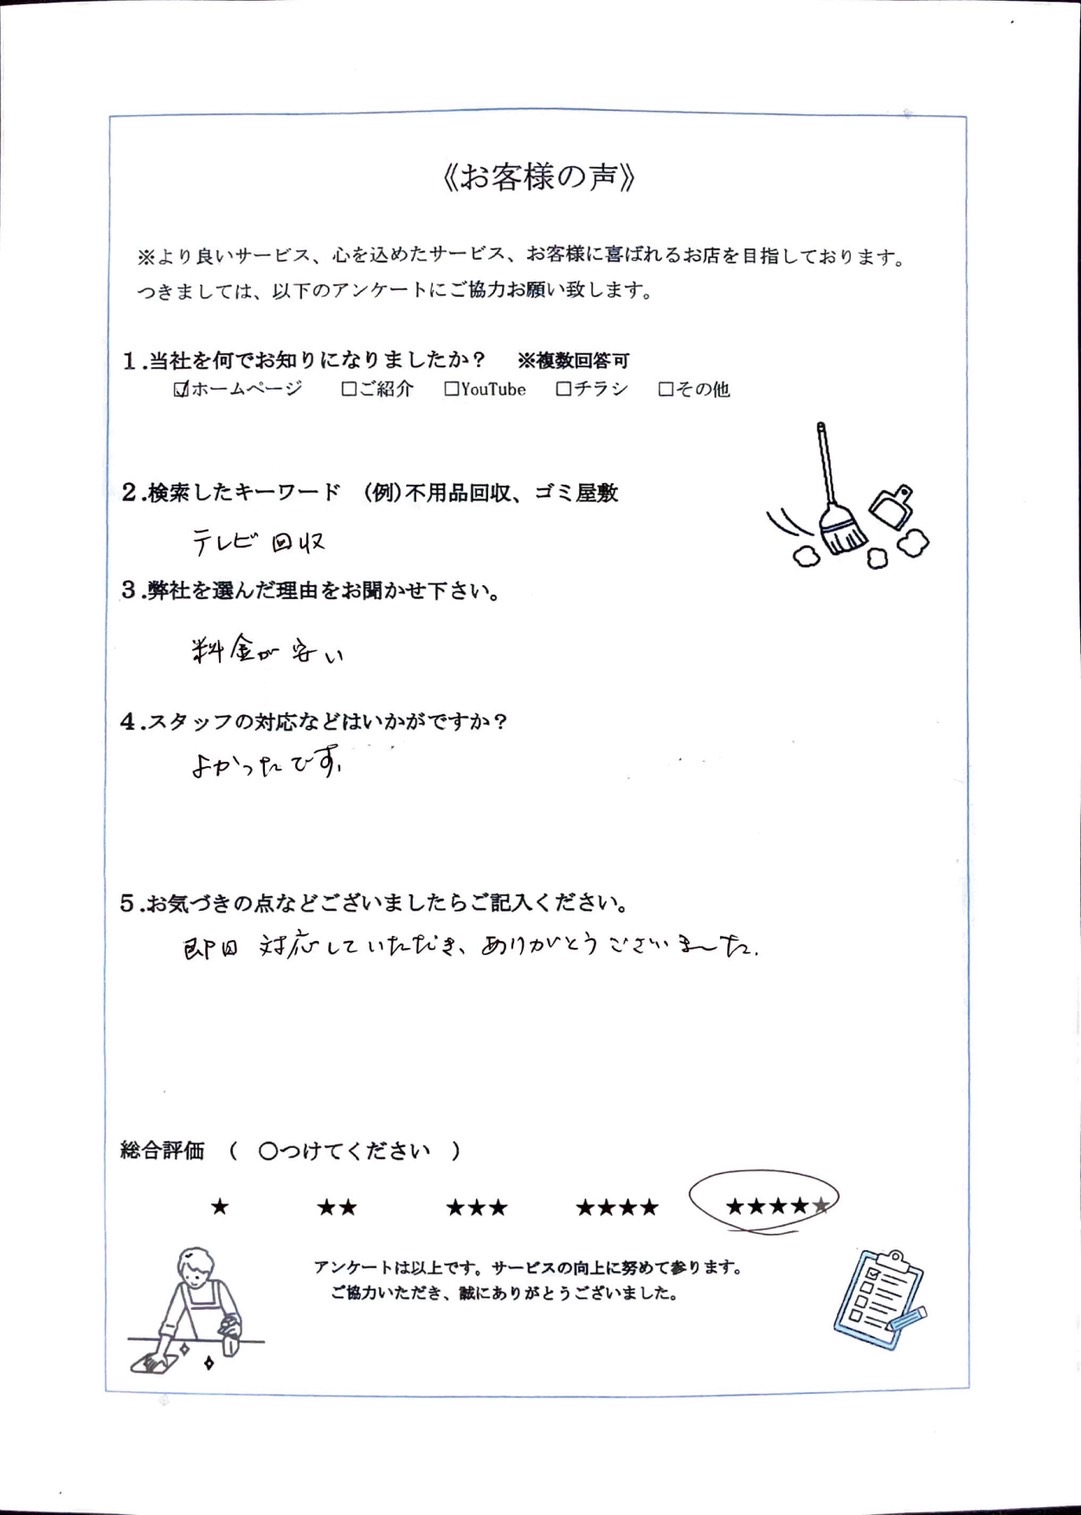 《お客様の声》
※より良いサービス、心を込めたサービス、お客様に喜ばれるお店を目指しております。
つきましては、以下のアンケートにご協力お願い致します。
1.当社を何でお知りになりましたか？　※複数回答可
☑ホームページ　□ご紹介　□YouTube　□チラシ　□その他
2.検索したキーワード　(例)不用品回収、ゴミ屋敷
テレビ回収
3.弊社を選んだ理由をお聞かせ下さい。
料金が安い
4.スタッフの対応などはいかがですか？
よかったです。
5.お気づきの点などございましたらご記入ください。
即日対応していただき、ありがとうございました.
総合評価　(　○つけてください　)
★　★★　★★★　★★★★　★★★★★
アンケートは以上です。サービスの向上に努めて参ります。
ご協力いただき、誠にありがとうございました。